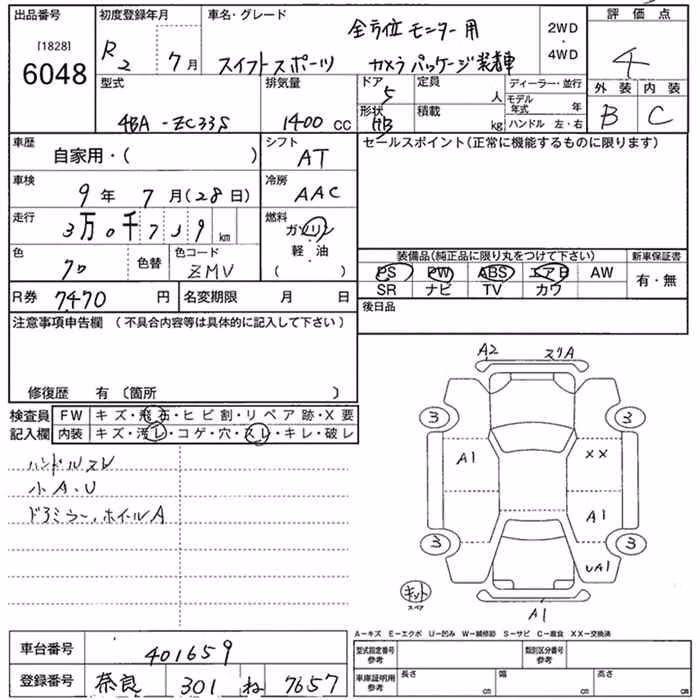 出品番号 初度登録年月 車名・グレード 評価点
[1828]
6048
R2 7月
全方位モニター用
スイフトスポーツ カメラパッケージ装着車
2WD
・
4WD
4
外装 内装
B C
型式 排気量 ドア 定員 ディーラー・並行
4BA-ZC33S 1400 cc 5 人
モデル年式 年
形状 積載
HB kg ハンドル 左・右
車歴 自家用・( )
シフト AT
セールスポイント(正常に機能するものに限ります)
車検 9年 7月(28日)
冷房 AAC
走行 3万0千719 km
燃料 ガソリン
軽・油
( )
色 色替 色コード ZMV
装備品(純正品に限り丸をつけて下さい) 新車保証書
PS PW ABS エアB AW 有・無
SR ナビ TV カワ
R券 7470 円 名変期限 月 日
後日品
注意事項申告欄 (不具合内容等は具体的に記入して下さい)
修復歴 有 〔箇所 〕
検査員 FW キズ・飛石・ヒビ割・リペア跡・X要
記入欄 内装 キズ・汚レ・コゲ・穴・スレ・キレ・破レ
ハンドルスレ
小A、U
ドアミラー、ホイールA
A2 スリA
3 3
A1 XX
A1
3 3
UA1
キット
スペア
A1
A−キズ E−エクボ U−凹み W−補修跡 S−サビ C−腐食 XX−交換済
車台番号 401659
型式指定番号 参考 類別区分番号 参考
登録番号 奈良 301 ね 7657
車庫証明用 参考 長さ cm 幅 cm 高さ cm